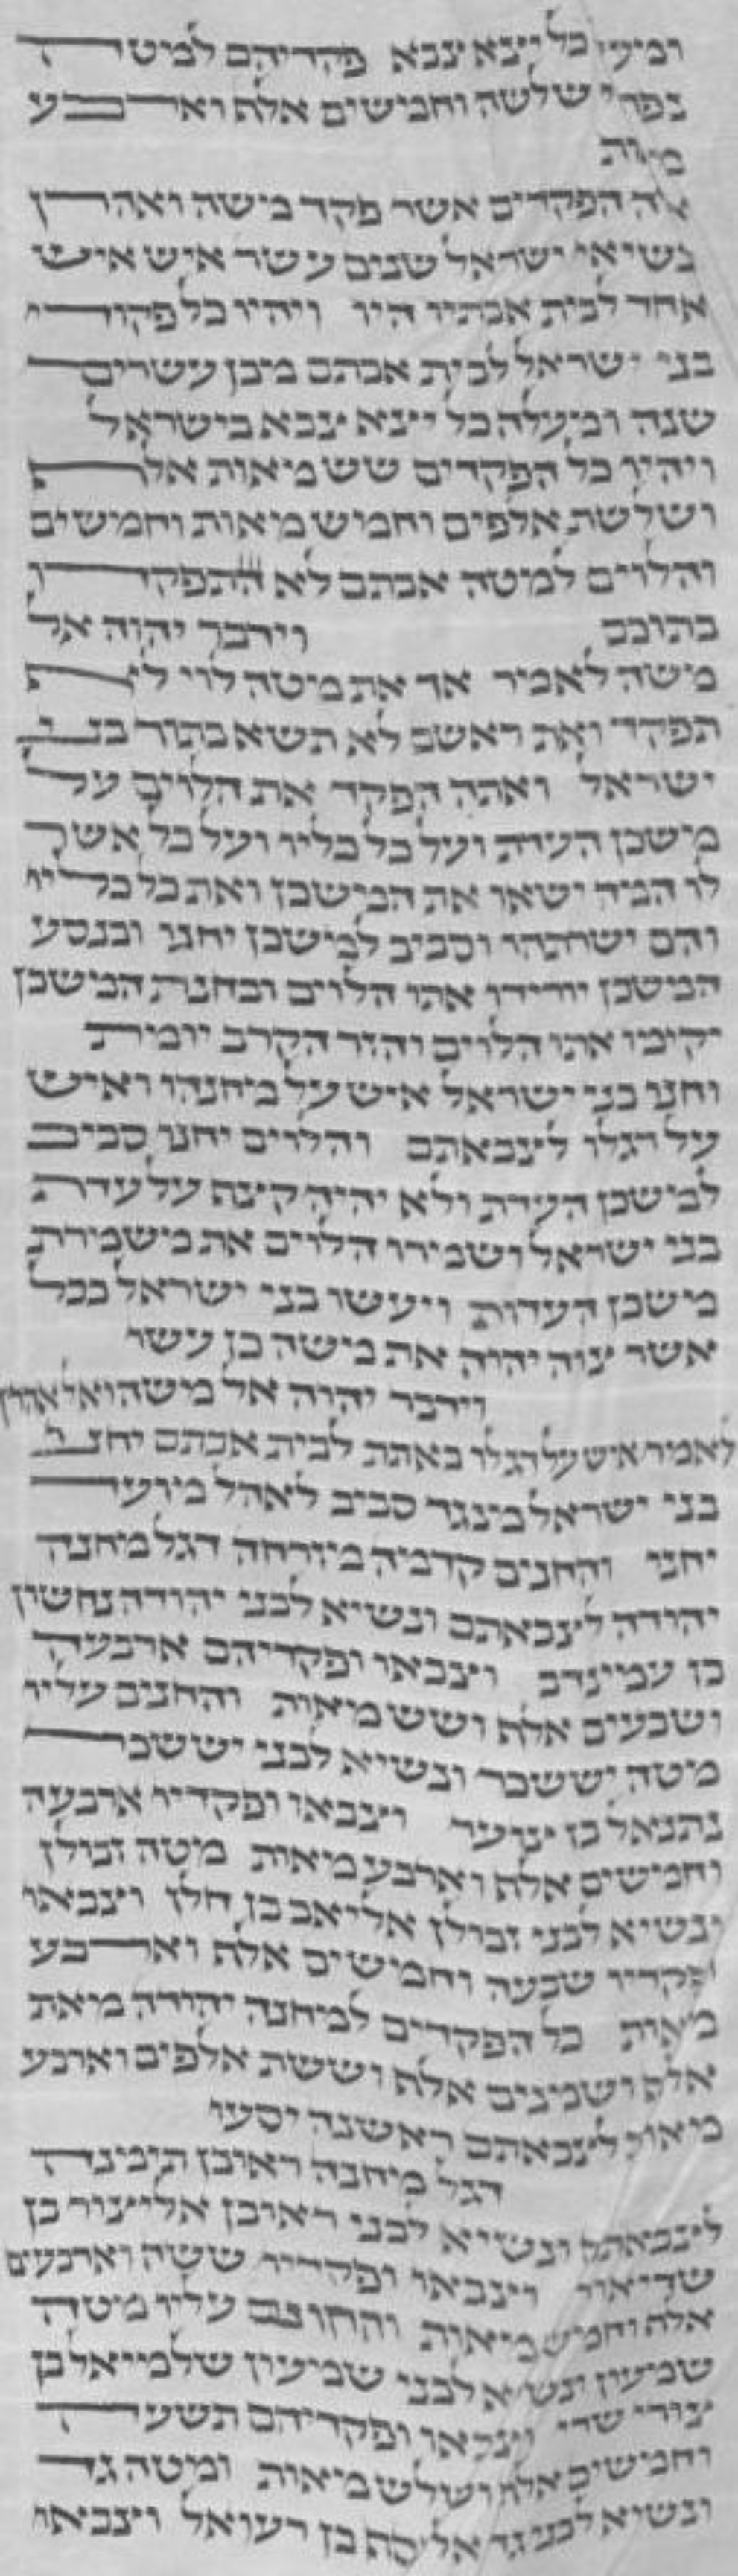 ומעלה כל יצא צבא פקדיהם למטה
נפתלי שלשה וחמישים אלף וארבע
מאות
אלה הפקדים אשר פקד משה ואהרן
נשיאי ישראל שנים עשר איש איש
אחד לבית אבתיו היו ויהיו כל פקודי
בני ישראל לבית אבתם מבן עשרים
שנה ומעלה כל יצא צבא בישראל
ויהיו כל הפקדים שש מאות אלף
ושלשת אלפים וחמש מאות וחמישים
והלוים למטה אבתם לא התפקדו
בתוכם וידבר יהוה אל
משה לאמר אך את מטה לוי לא
תפקד ואת ראשם לא תשא בתוך בני
ישראל ואתה הפקד את הלוים על
משכן העדת ועל כל כליו ועל כל אשר
לו המה ישאו את המשכן ואת כל כליו
והם ישרתהו וסביב למשכן יחנו ובנסע
המשכן יורידו אתו הלוים ובחנת המשכן
יקימו אתו הלוים והזר הקרב יומת
וחנו בני ישראל איש על מחנהו ואיש
על דגלו לצבאתם והלוים יחנו סביב
למשכן העדת ולא יהיה קצף על עדת
בני ישראל ושמרו הלוים את משמרת
משכן העדות ויעשו בני ישראל ככל
אשר צוה יהוה את משה כן עשו
וידבר יהוה אל משה ואל אהרן
לאמר איש על דגלו באתת לבית אבתם יחנו
בני ישראל מנגד סביב לאהל מועד
יחנו והחנים קדמה מזרחה דגל מחנה
יהודה לצבאתם ונשיא לבני יהודה נחשון
בן עמינדב וצבאו ופקדיהם ארבעה
ושבעים אלף ושש מאות והחנים עליו
מטה יששכר ונשיא לבני יששכר
נתנאל בן צוער וצבאו ופקדיו ארבעה
וחמישים אלף וארבע מאות מטה זבולן
ונשיא לבני זבולן אליאב בן חלן וצבאו
ופקדיו שבעה וחמישים אלף וארבע
מאות כל הפקדים למחנה יהודה מאת
אלף ושמנים אלף וששת אלפים וארבע
מאות לצבאתם ראשנה יסעו
דגל מחנה ראובן תימנה
לצבאתם ונשיא לבני ראובן אליצור בן
שדיאור וצבאו ופקדיו ששה וארבעים
אלף וחמש מאות והחונם עליו מטה
שמעון ונשיא לבני שמעון שלמיאל בן
צורי שדי וצבאו ופקדיהם תשעה
וחמישים אלף ושלש מאות ומטה גד
ונשיא לבני גד אליסף בן רעואל וצבאו